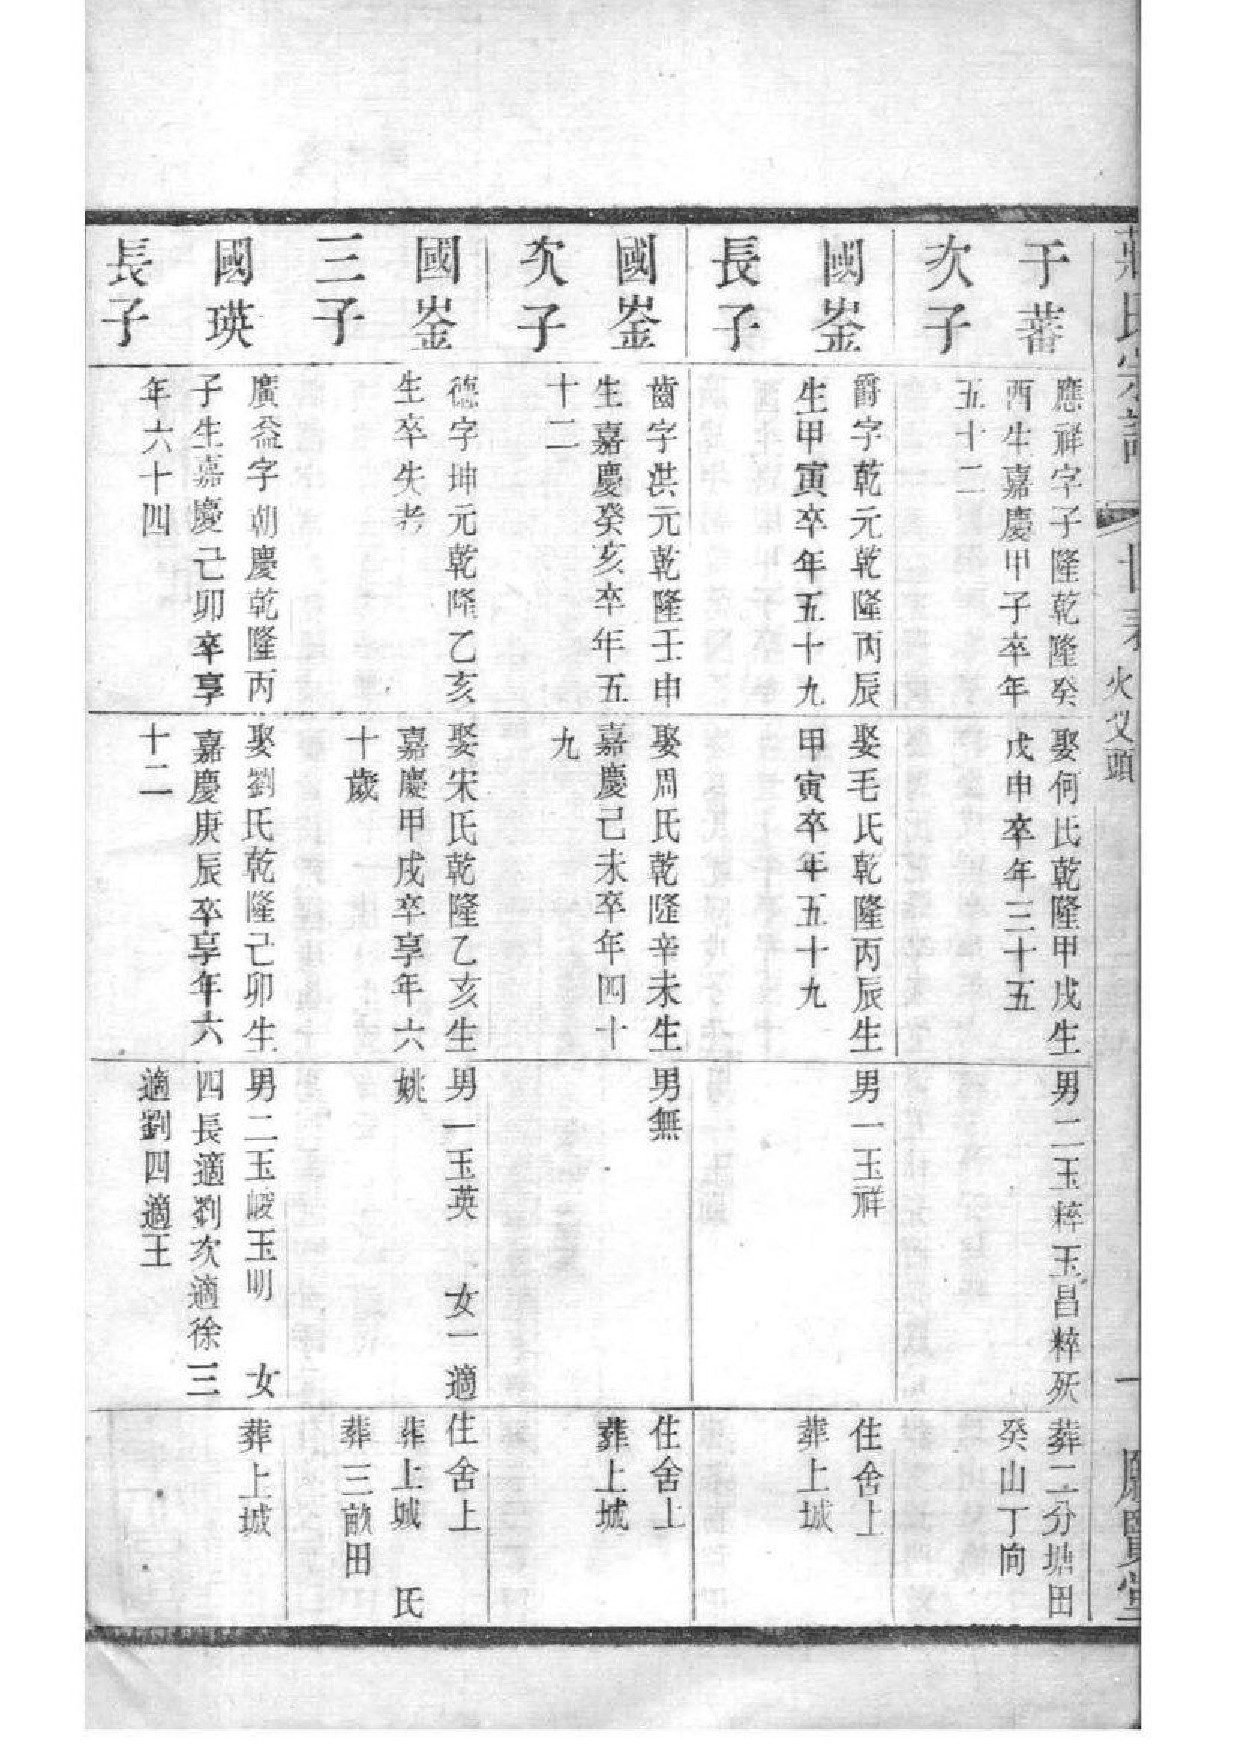 氏宗譜
世表
火乂頭
一
慶賢堂
于蕃
次子
應祥字子隆乾隆癸
酉生嘉慶甲子卒年
五十二
娶何氏乾隆甲戌生
戊申卒年三十五
男二玉粹玉昌粹殀
葬二分塘田
癸山丁向
國崟
長子
爵字乾元乾隆丙辰
生甲寅卒年五十九
娶毛氏乾隆丙辰生
甲寅卒年五十九
男一玉祥
住舍上
葬上城
國崟
次子
齒字洪元乾隆壬申
生嘉慶癸亥卒年五
十二
娶周氏乾隆辛未生
嘉慶己未卒年四十
九
男無
住舍上
葬上城
國崟
三子
德字坤元乾隆乙亥
生卒失考
娶宋氏乾隆乙亥生
嘉慶甲戌卒享年六
十歲
男一玉英 女一適
姚
住舍上
葬上城 氏
葬三畝田
國瑛
長子
廣益字朝慶乾隆丙
子生嘉慶己卯卒享
年六十四
娶劉氏乾隆己卯生
嘉慶庚辰卒享年六
十二
男二玉峻玉明 女
四長適劉次適徐三
適劉四適王
葬上城